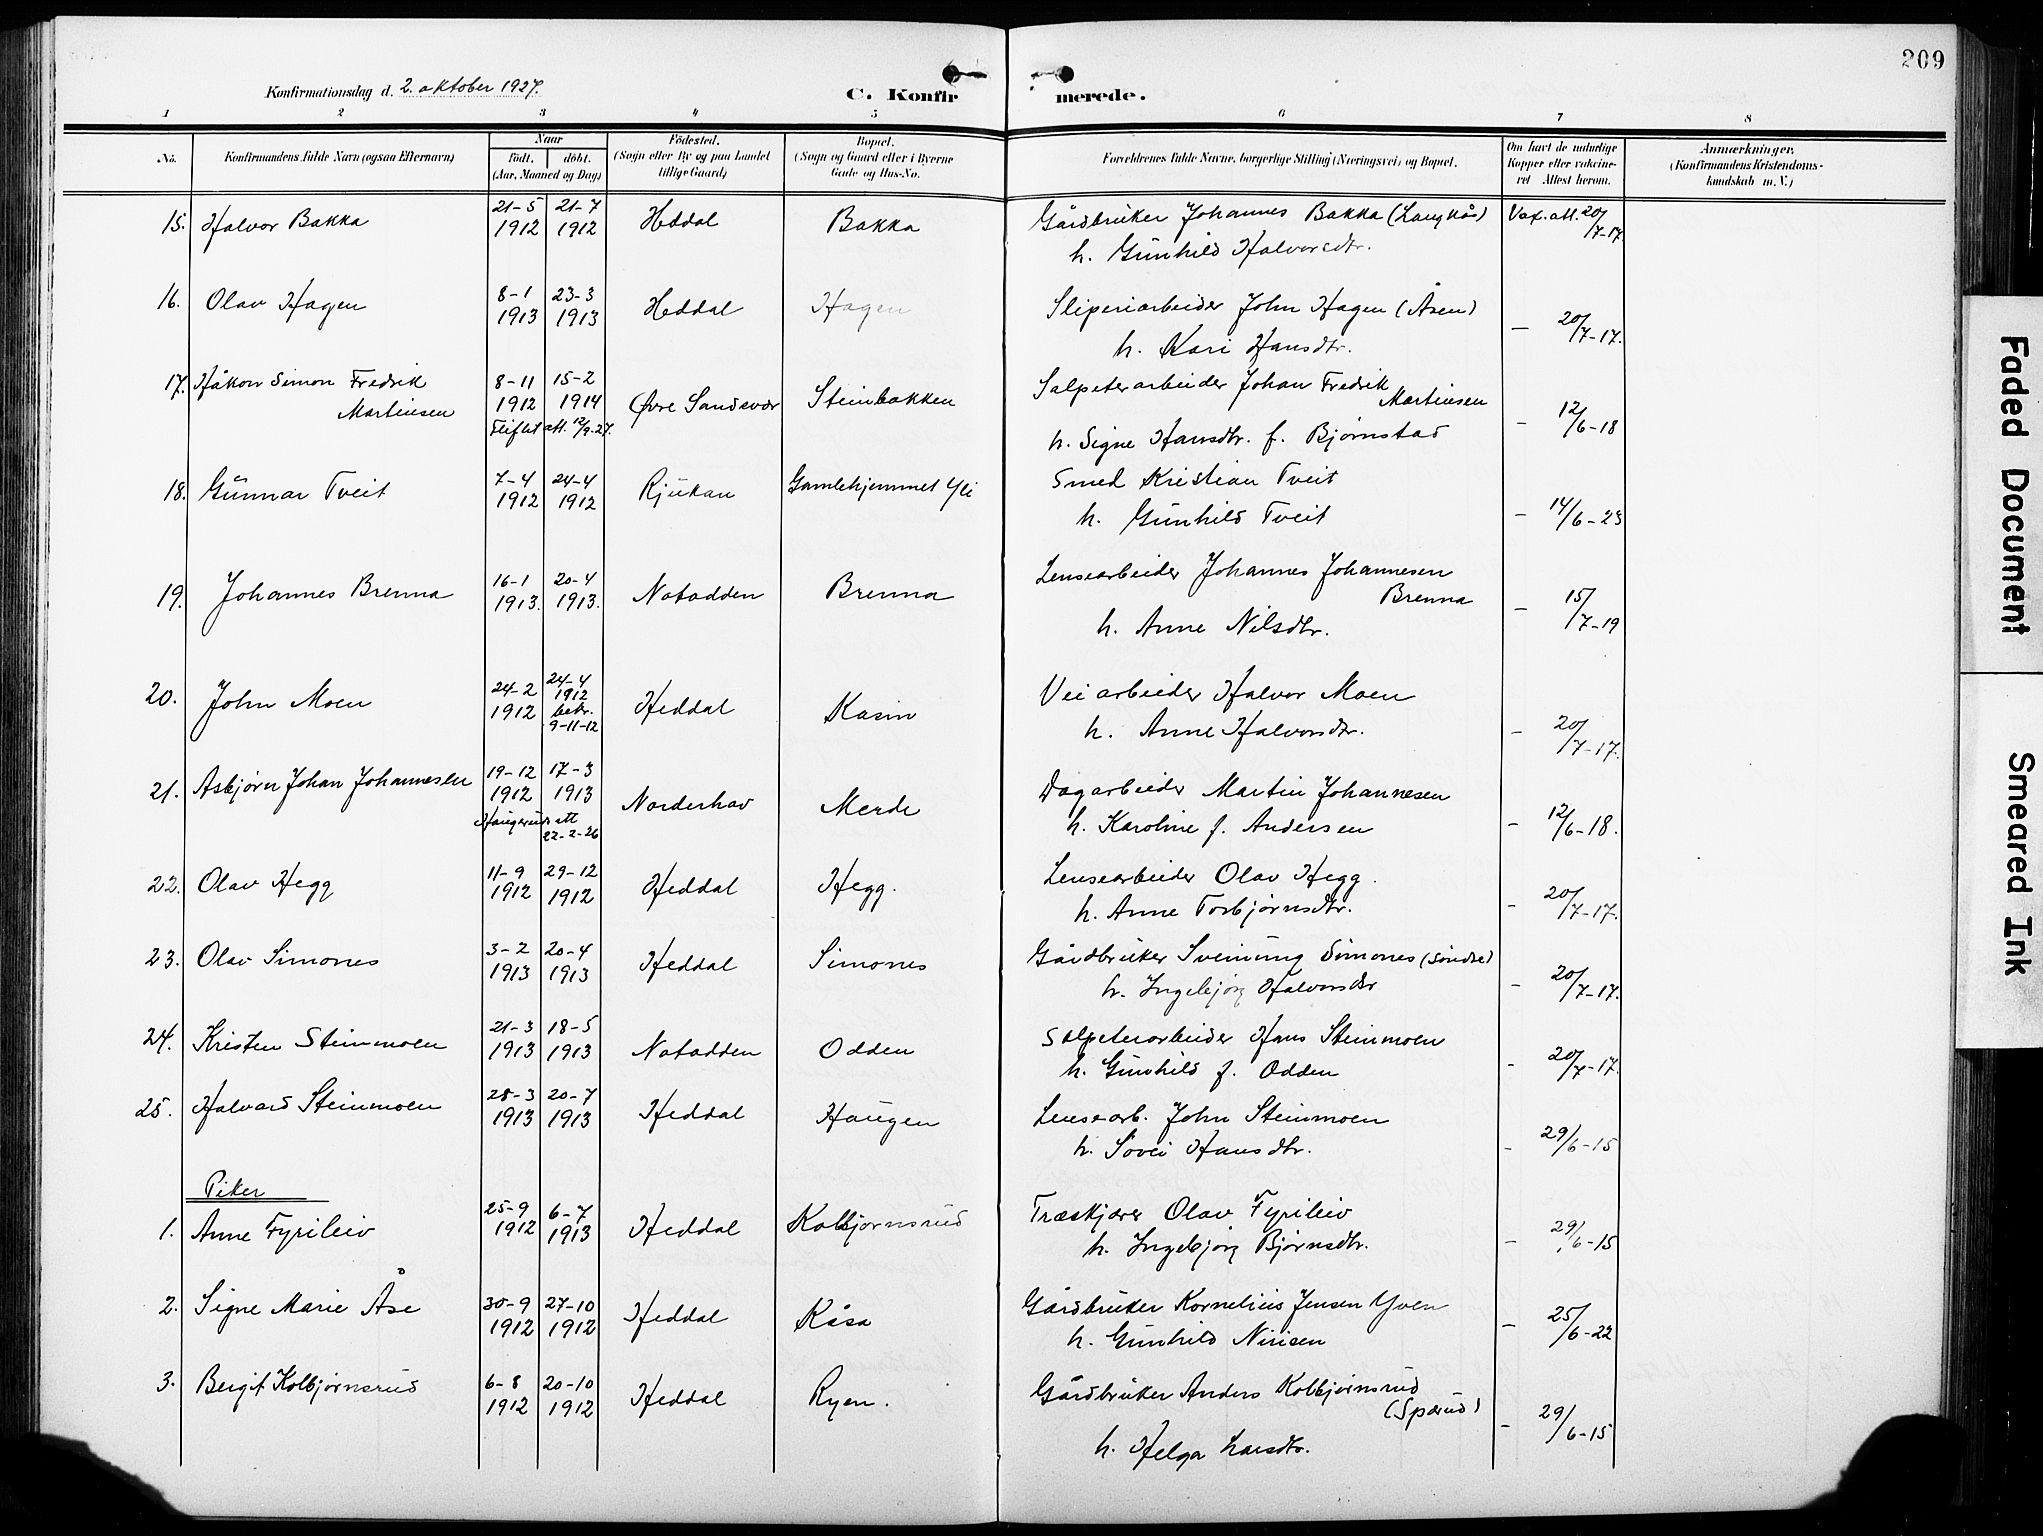 209
Konfirmationsdag d. 2. oktober 1927.
C. Konfirmerede.
1 2 3 4 5 6 7 8
No. Konfirmandens fulde Navn (ogsaa Efternavn) Naar Födested. Bopæl. Forældrenes fulde Navne, borgerlige Stilling (Næringsvei) og Bopæl. Om havt de naturlige Anmærkninger.
födt. döbt. (Sogn eller By og paa Landet (Sogn og Gaard eller i Byerne Kopper eller vakcine- (Konfirmandens Kristendoms-
(Aar, Maaned og Dag) tillige Gaard) Gade og Hus-No. ret Attest herom. kundskab m. V.)
15. Halvor Bakka 21-5 1912 21-7 1912 Heddal Bakka Gårdbruker Johannes Bakka (Langkås) Vax. att. 20/7-17.
h. Gunhild Halvorsdtr.
16. Olav Hagen 8-1 1913 23-3 1913 Heddal Hagen Sliperiarbeider John Hagen (Åsen) – 20/7-17.
h. Kari Hansdtr.
17. Håkon Simon Fredrik Martinsen 8-11 1912 15-2 1914 Øvre Sandsvær Steinbakken Salpeterarbeider Johan Fredrik Martinsen – 12/6-18
att. 12/9-27. h. Signe Hansdtr. f. Bjørnstad
18. Gunnar Tveit 7-4 1912 24-4 1912 Rjukan Gamlehjemmet Yli Smed Kristian Tveit – 14/6-23
h. Gunhild Tveit
19. Johannes Brenna 16-1 1913. 20-4 1913. Notodden Brenna Lensearbeider Johannes Johannesen Brenna – 15/7-19
h. Anne Nilsdtr.
20. John Moen 24-2 1912 24-4 1912 bekr. 9-11-12 Heddal Kasin Veiarbeider Halvor Moen – 20/7-17.
h. Anne Halvorsdtr.
21. Asbjørn Johan Johannesen 19-12 1912 17-3 1913 Norderhov Merde Dagarbeider Martin Johannesen – 12/6-18.
Haugerud att 22-2-26 h. Karoline f. Andersen
22. Olav Hegg 11-9 1912 29-12 1912 Heddal Hegg. Lensearbeider Olav Hegg. – 20/7-17.
h. Anne Torbjørnsdtr.
23. Olav Simones 3-2 1913 20-4 1913 Heddal Simones Gårdbruker Sveinung Simones (søndre) – 20/7-17.
h. Ingebjørg Halvorsdtr
24. Kristen Steinmoen 21-3 1913 18-5 1913 Notodden Odden Salpeterarbeider Hans Steinmoen – 20/7-17.
h. Gunhild f. Odden
25. Halvard Steinmoen 28-3 1913 20-7 1913 Heddal Haugen Lensearb. John Steinmoen – 29/6-15
h. Hansdtr.
Piker
1. Anne Fyrileiv 25-9 1912 6-7 1913 Heddal Kolbjørnsrud Træskjærer Olav Fyrileiv – 29/6-15
h. Ingebjørg Bjørnsdtr.
2. Signe Marie Åse 30-9 1912 27-10 1912 Heddal Kåsa Gårdbruker Kornelius Jensen Yven – 25/6-22
h. Gunhild Nirisen
3. Bergit Kolbjørnsrud 6-8 1912 20-10 1912 Heddal Ryen. Gårdbruker Anders Kolbjørnsrud (Spærud) – 29/6-15
h. Helga Larsdtr.
Faded Document
Smeared Ink